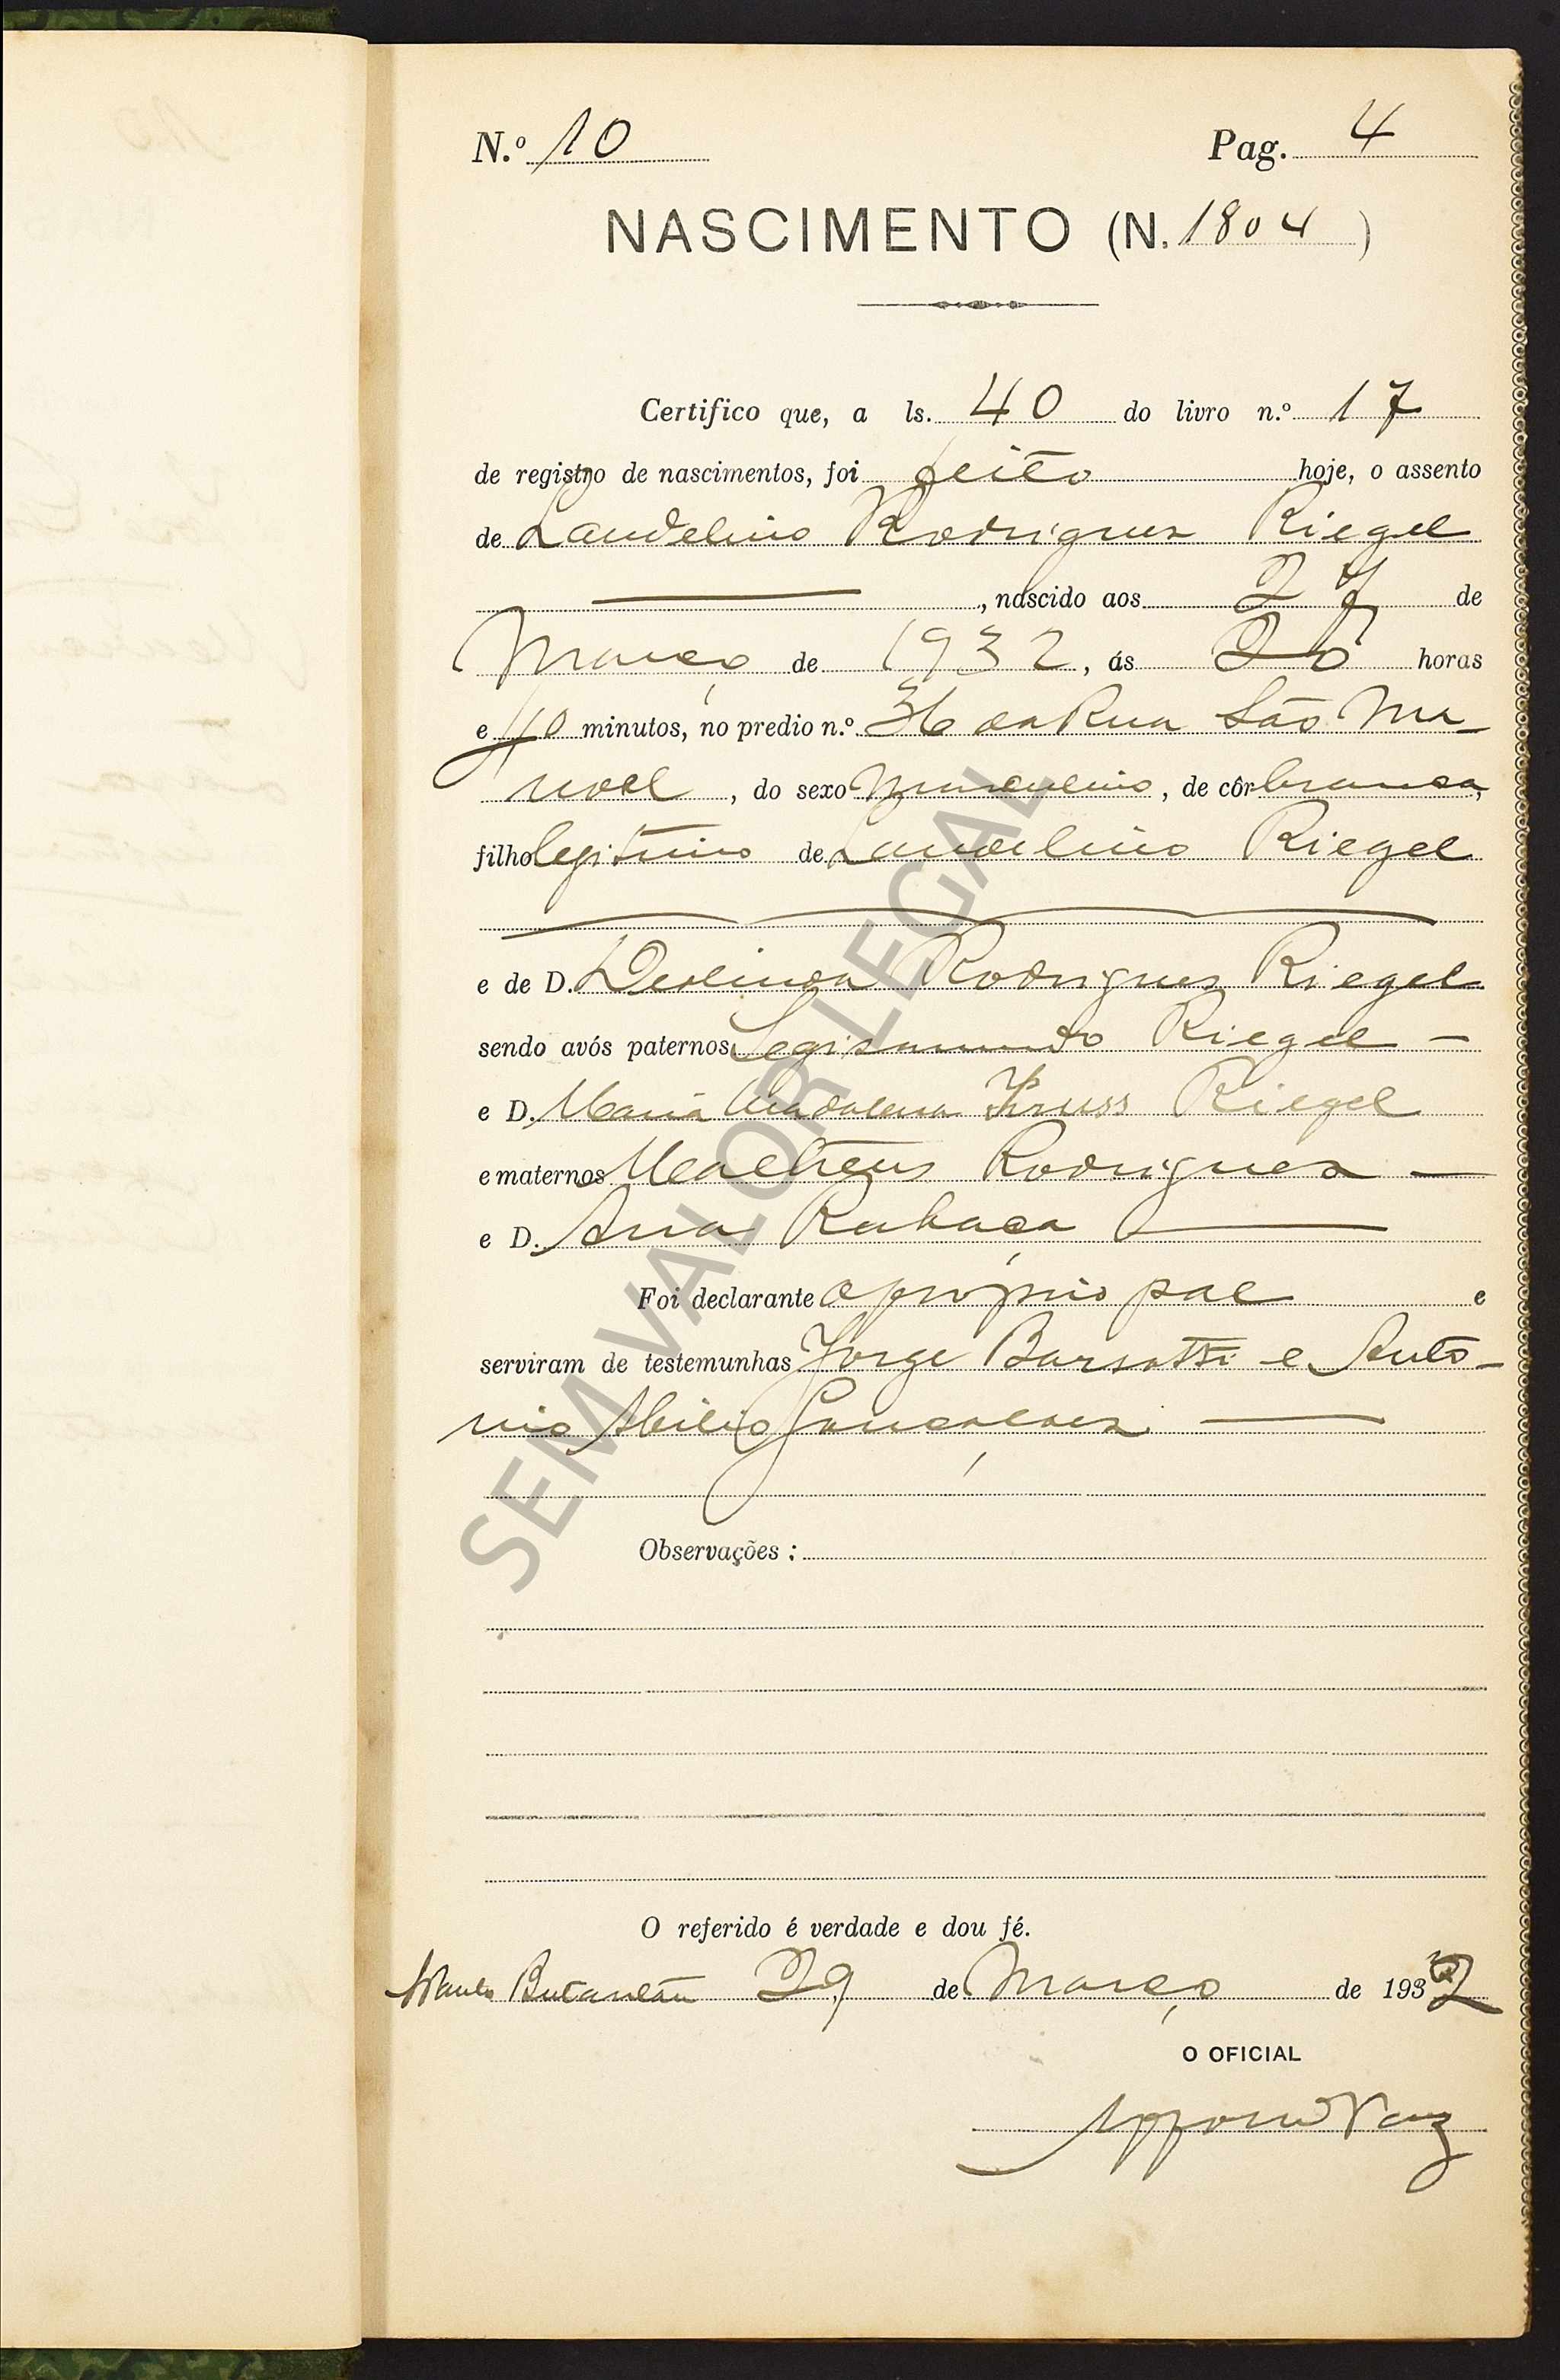 N.º 10 Pag. 4
NASCIMENTO (N. 1804)
Certifico que, a ls. 40 do livro n.º 17
de registro de nascimentos, foi feito hoje, o assento
de Laudelino Rodrigues Riegel
, nascido aos 27 de
Março de 1932, ás 20 horas
e 40 minutos, no predio n.º 36 da Rua São Ma-
noel, do sexo Masculino, de côr branca,
filho legitimo de Laudelino Riegel
e de D. Deolinda Rodrigues Riegel
sendo avós paternos Segismundo Riegel
e D. Maria Magdalena Kruss Riegel
e maternos Matheus Rodrigues
e D. Ana Rabaça
Foi declarante o proprio pae e
serviram de testemunhas Jorge Barsotti e Antô-
nio Abilio Gonçalves.
Observações :
O referido é verdade e dou fé.
Butantan 29 de Março de 1932
O OFICIAL
SEM VALOR LEGAL